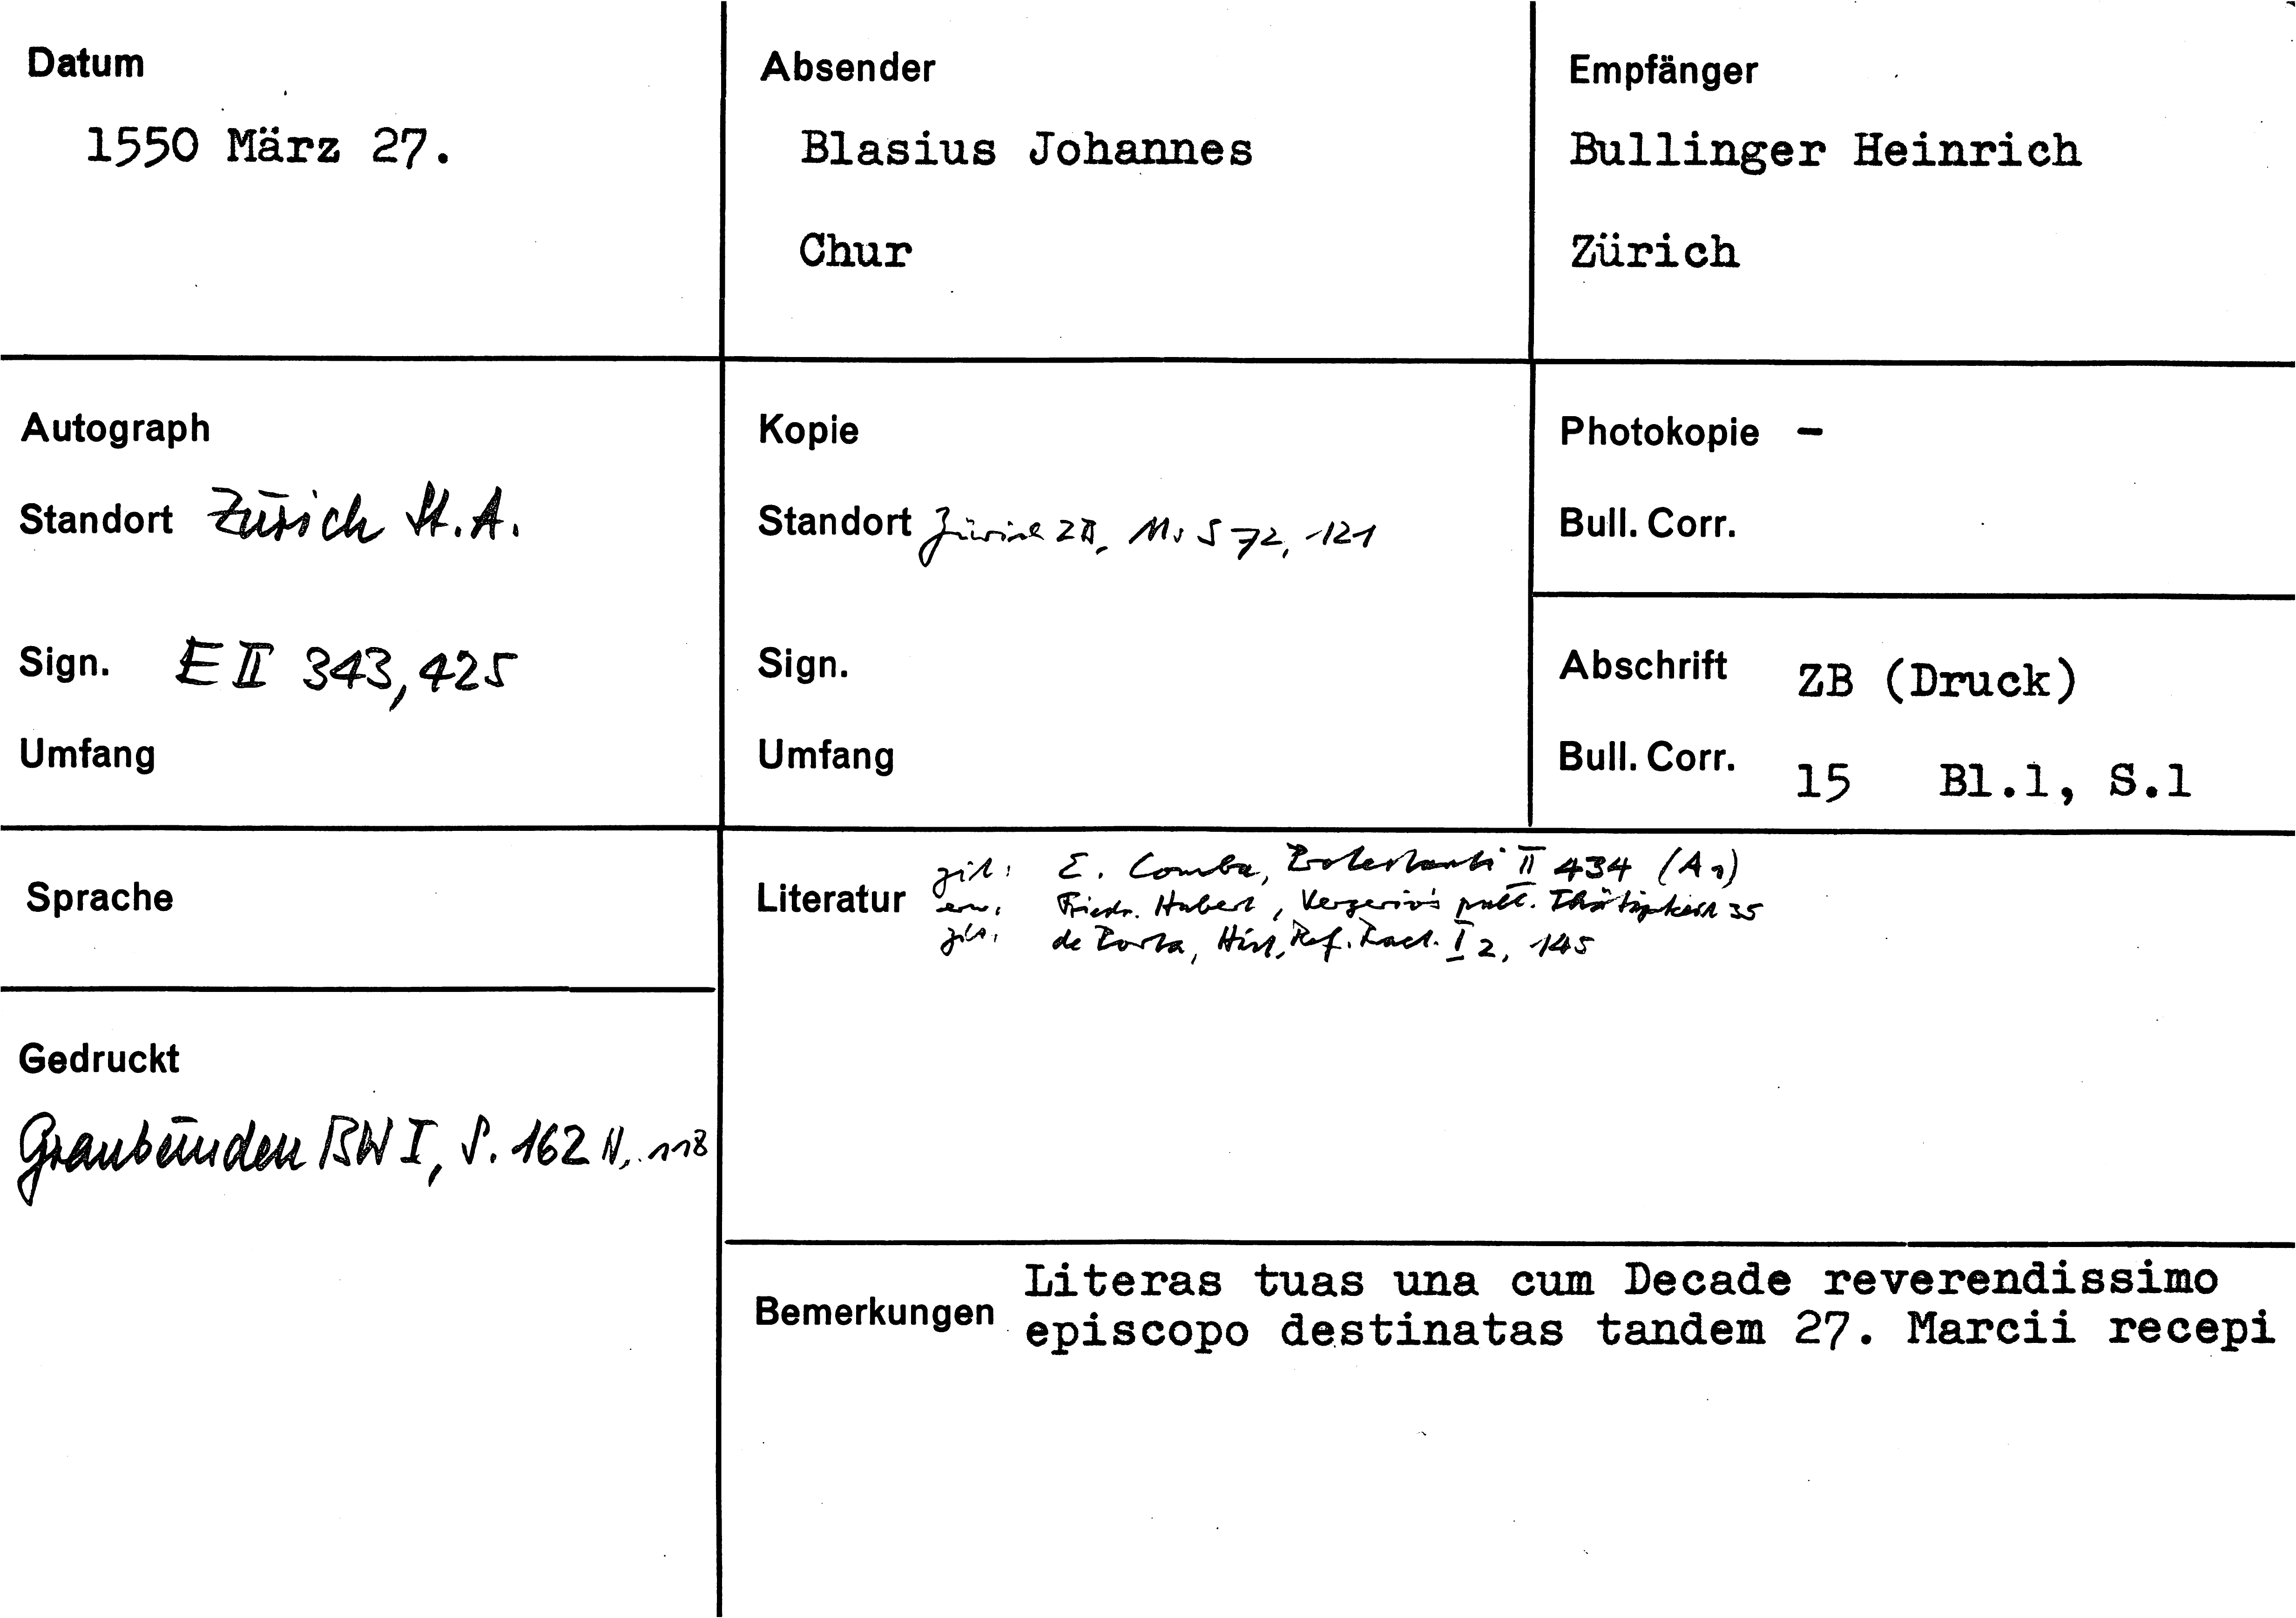 Datum
1550 März 27.
Absender
Blasius Johannes
Chur
Empfänger
Bullinger Heinrich
Zürich
Autograph
Standort Zürich St.A.
Sign. E II 343,425
Umfang
Kopie
Standort Zürich ZB, Ms S 72, 121
Sign.
Umfang
Photokopie -
Bull. Corr.
Abschrift ZB (Druck)
Bull. Corr. 15 Bl.1, S.1
Sprache
Gedruckt
Graubünden BW I, S. 162 N. 118
Literatur zit: E. Comba, Protestanti II 434 (A1)
erw. Friedr. Hubert, Vergerio's publ. Thätigkeit 35
zit. de Porta, Hist. Ref. Raet. I 2, 145
Bemerkungen Literas tuas una cum Decade reverendissimo
episcopo destinatas tandem 27. Marcii recepi